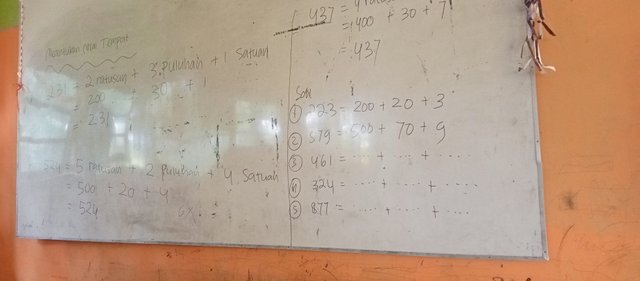 Menentukan Nilai Tempat
231 = 2 ratusan + 3 Puluhan + 1 Satuan
= 200 + 30 + 1
= 231
524 = 5 ratusan + 2 Puluhan + 4 Satuan
= 500 + 20 + 4
= 524
437 = 4 ratus
= 400 + 30 + 7
= 437
Soal
① 223 = 200 + 20 + 3
② 579 = 500 + 70 + 9
③ 461 = .... + .... + ....
④ 324 = .... + .... + ....
⑤ 877 = .... + .... + ....